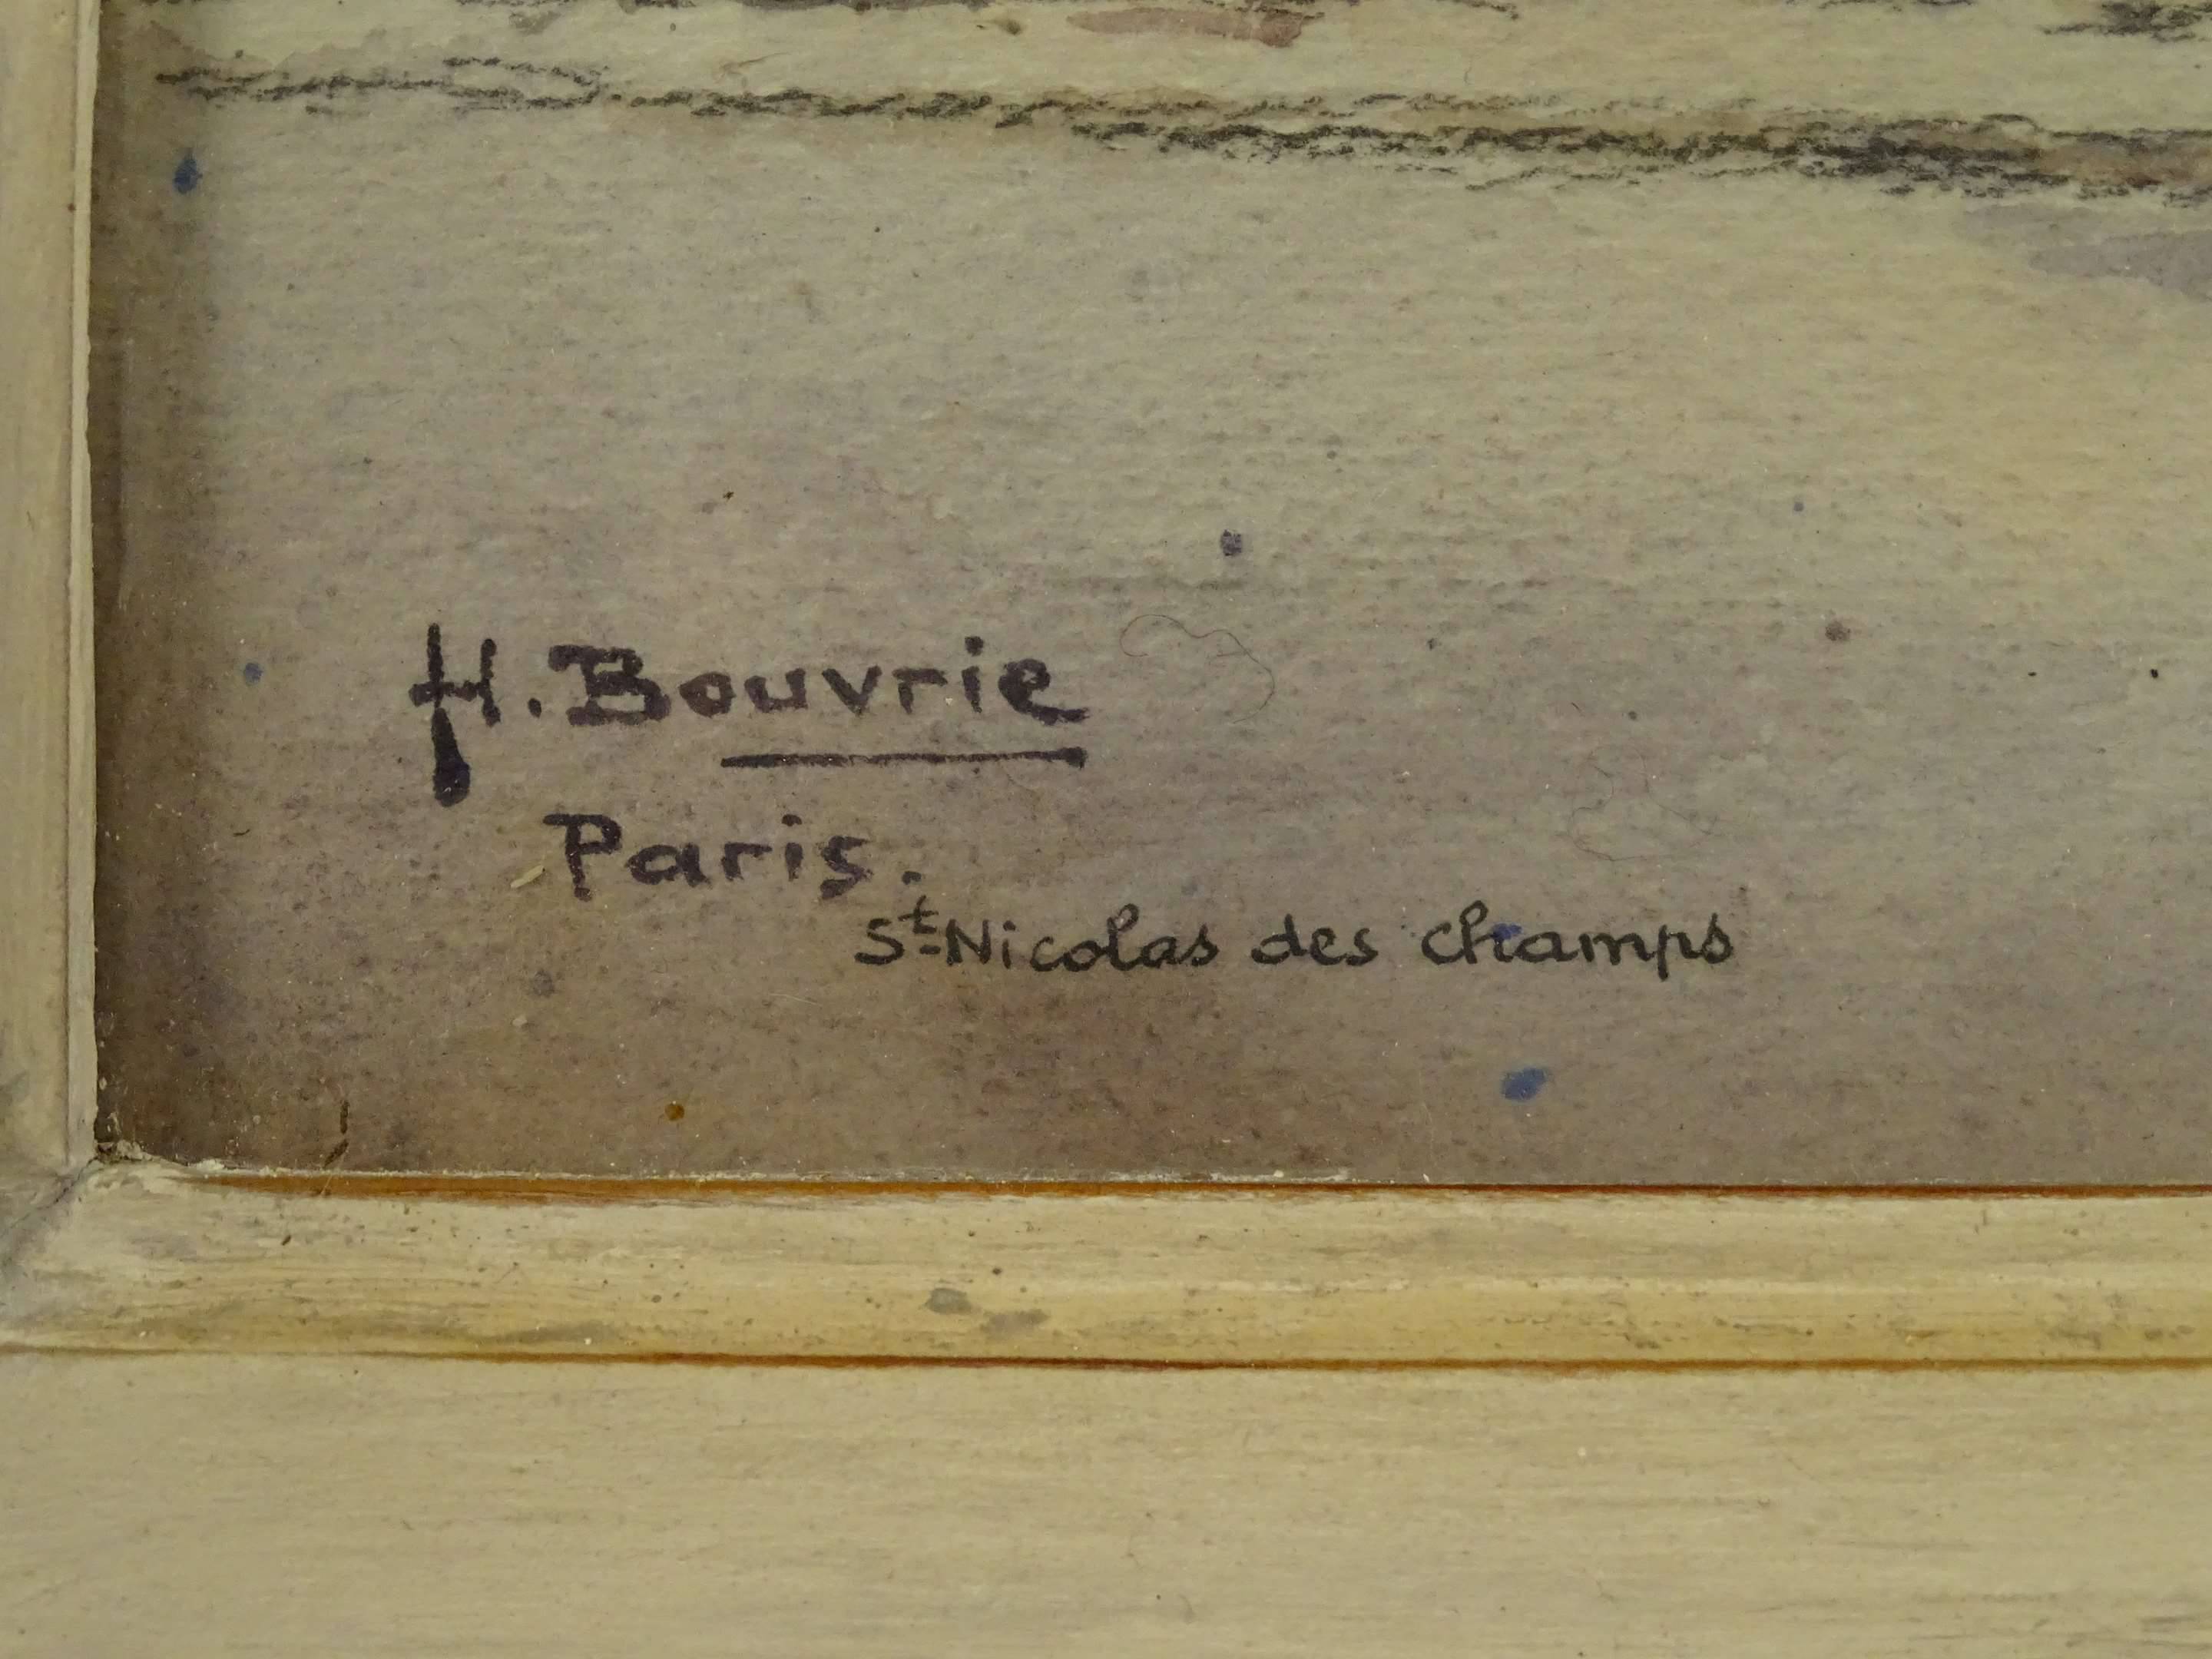 H. Bouvrie
Paris.
St-Nicolas des champs